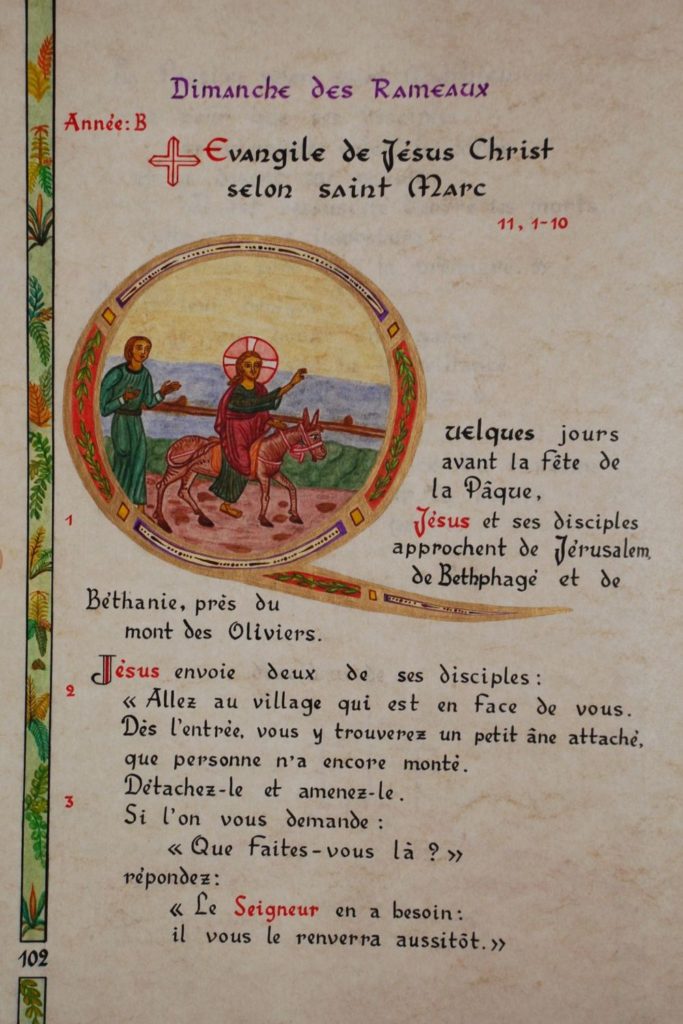 Dimanche des Rameaux
Année: B
Evangile de Jésus Christ
selon saint Marc
11, 1-10
Quelques jours
avant la fête de
la Pâque,
1 Jésus et ses disciples
approchent de Jérusalem,
de Bethphagé et de
Béthanie, près du
mont des Oliviers.
Jésus envoie deux de ses disciples :
2 « Allez au village qui est en face de vous.
Dès l'entrée, vous y trouverez un petit âne attaché,
que personne n'a encore monté.
Détachez-le et amenez-le.
3 Si l'on vous demande :
« Que faites-vous là ? »
répondez :
« Le Seigneur en a besoin :
il vous le renverra aussitôt. »
102